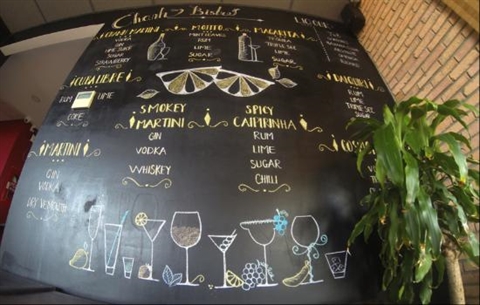 Bistro
LIQUOR
MARTINI
VODKA
GIN
LIME JUICE
SUGAR
STRAWBERRY
MOJITO
MINT LEAVES
RUM
LIME
SUGAR
MARGARITA
TEQUILA
TRIPLE SEC
LIME
SUGAR
CUBA LIBRE
RUM
LIME
COKE
SMOKEY
MARTINI
GIN
VODKA
WHISKEY
SPICY
CAIPIRINHA
RUM
LIME
SUGAR
CHILLI
DAIQUIRI
RUM
LIME
TRIPLE SEC
SUGAR
MARTINI
GIN
VODKA
DRY VERMOUTH